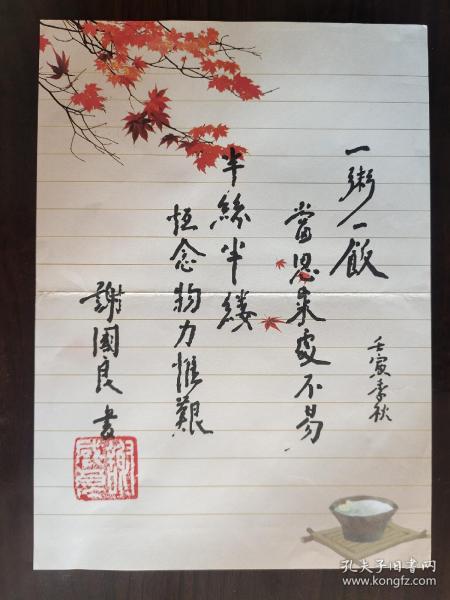 一粥一飯
當思來處不易
壬寅季秋
半絲半縷
恆念物力惟艱
謝國良書
孔夫子旧书网
www.kongfz.com